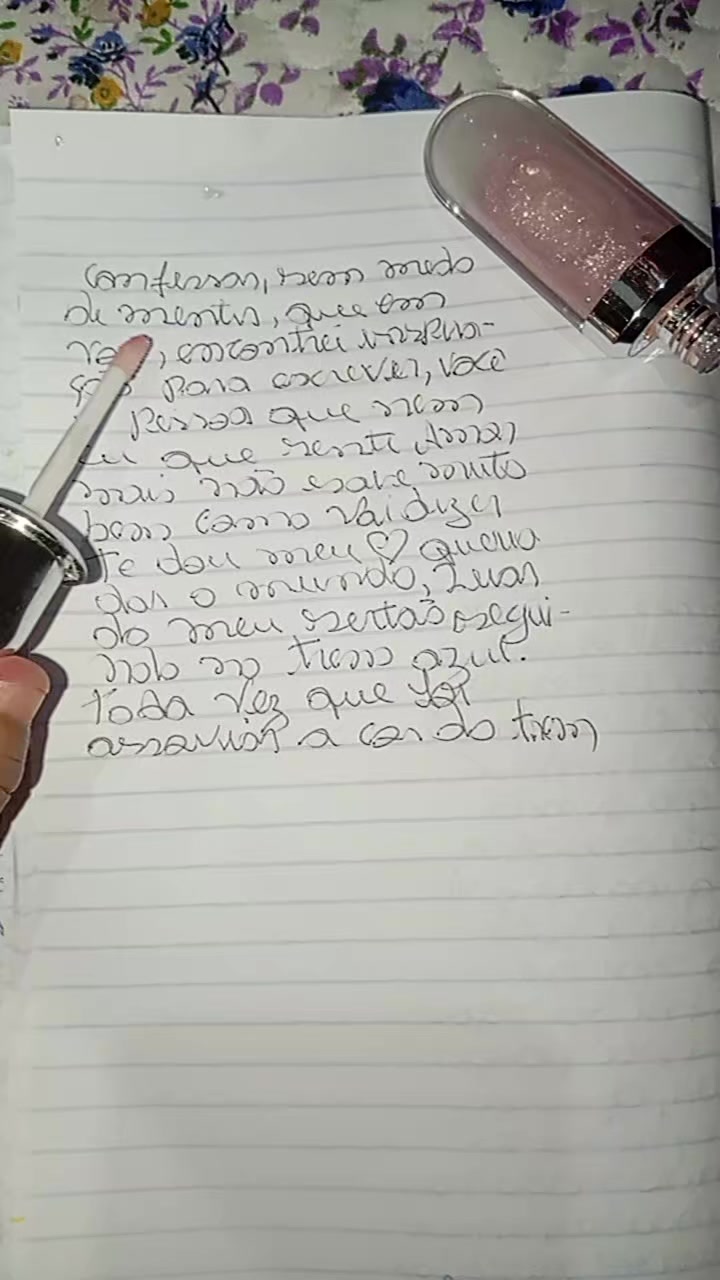 Confesson, sem medo
de mentir, que em
encontrei inspira-
para escrever, você
Pessoa que nem
eu que sente Amor,
mais não sabe muito
bem como vai dizer
Te dou meu ♡ queria
dar o mundo, Luar
do meu sertão, segui-
ndo no trem azul.
Toda vez que for
assoviar a cor do trem